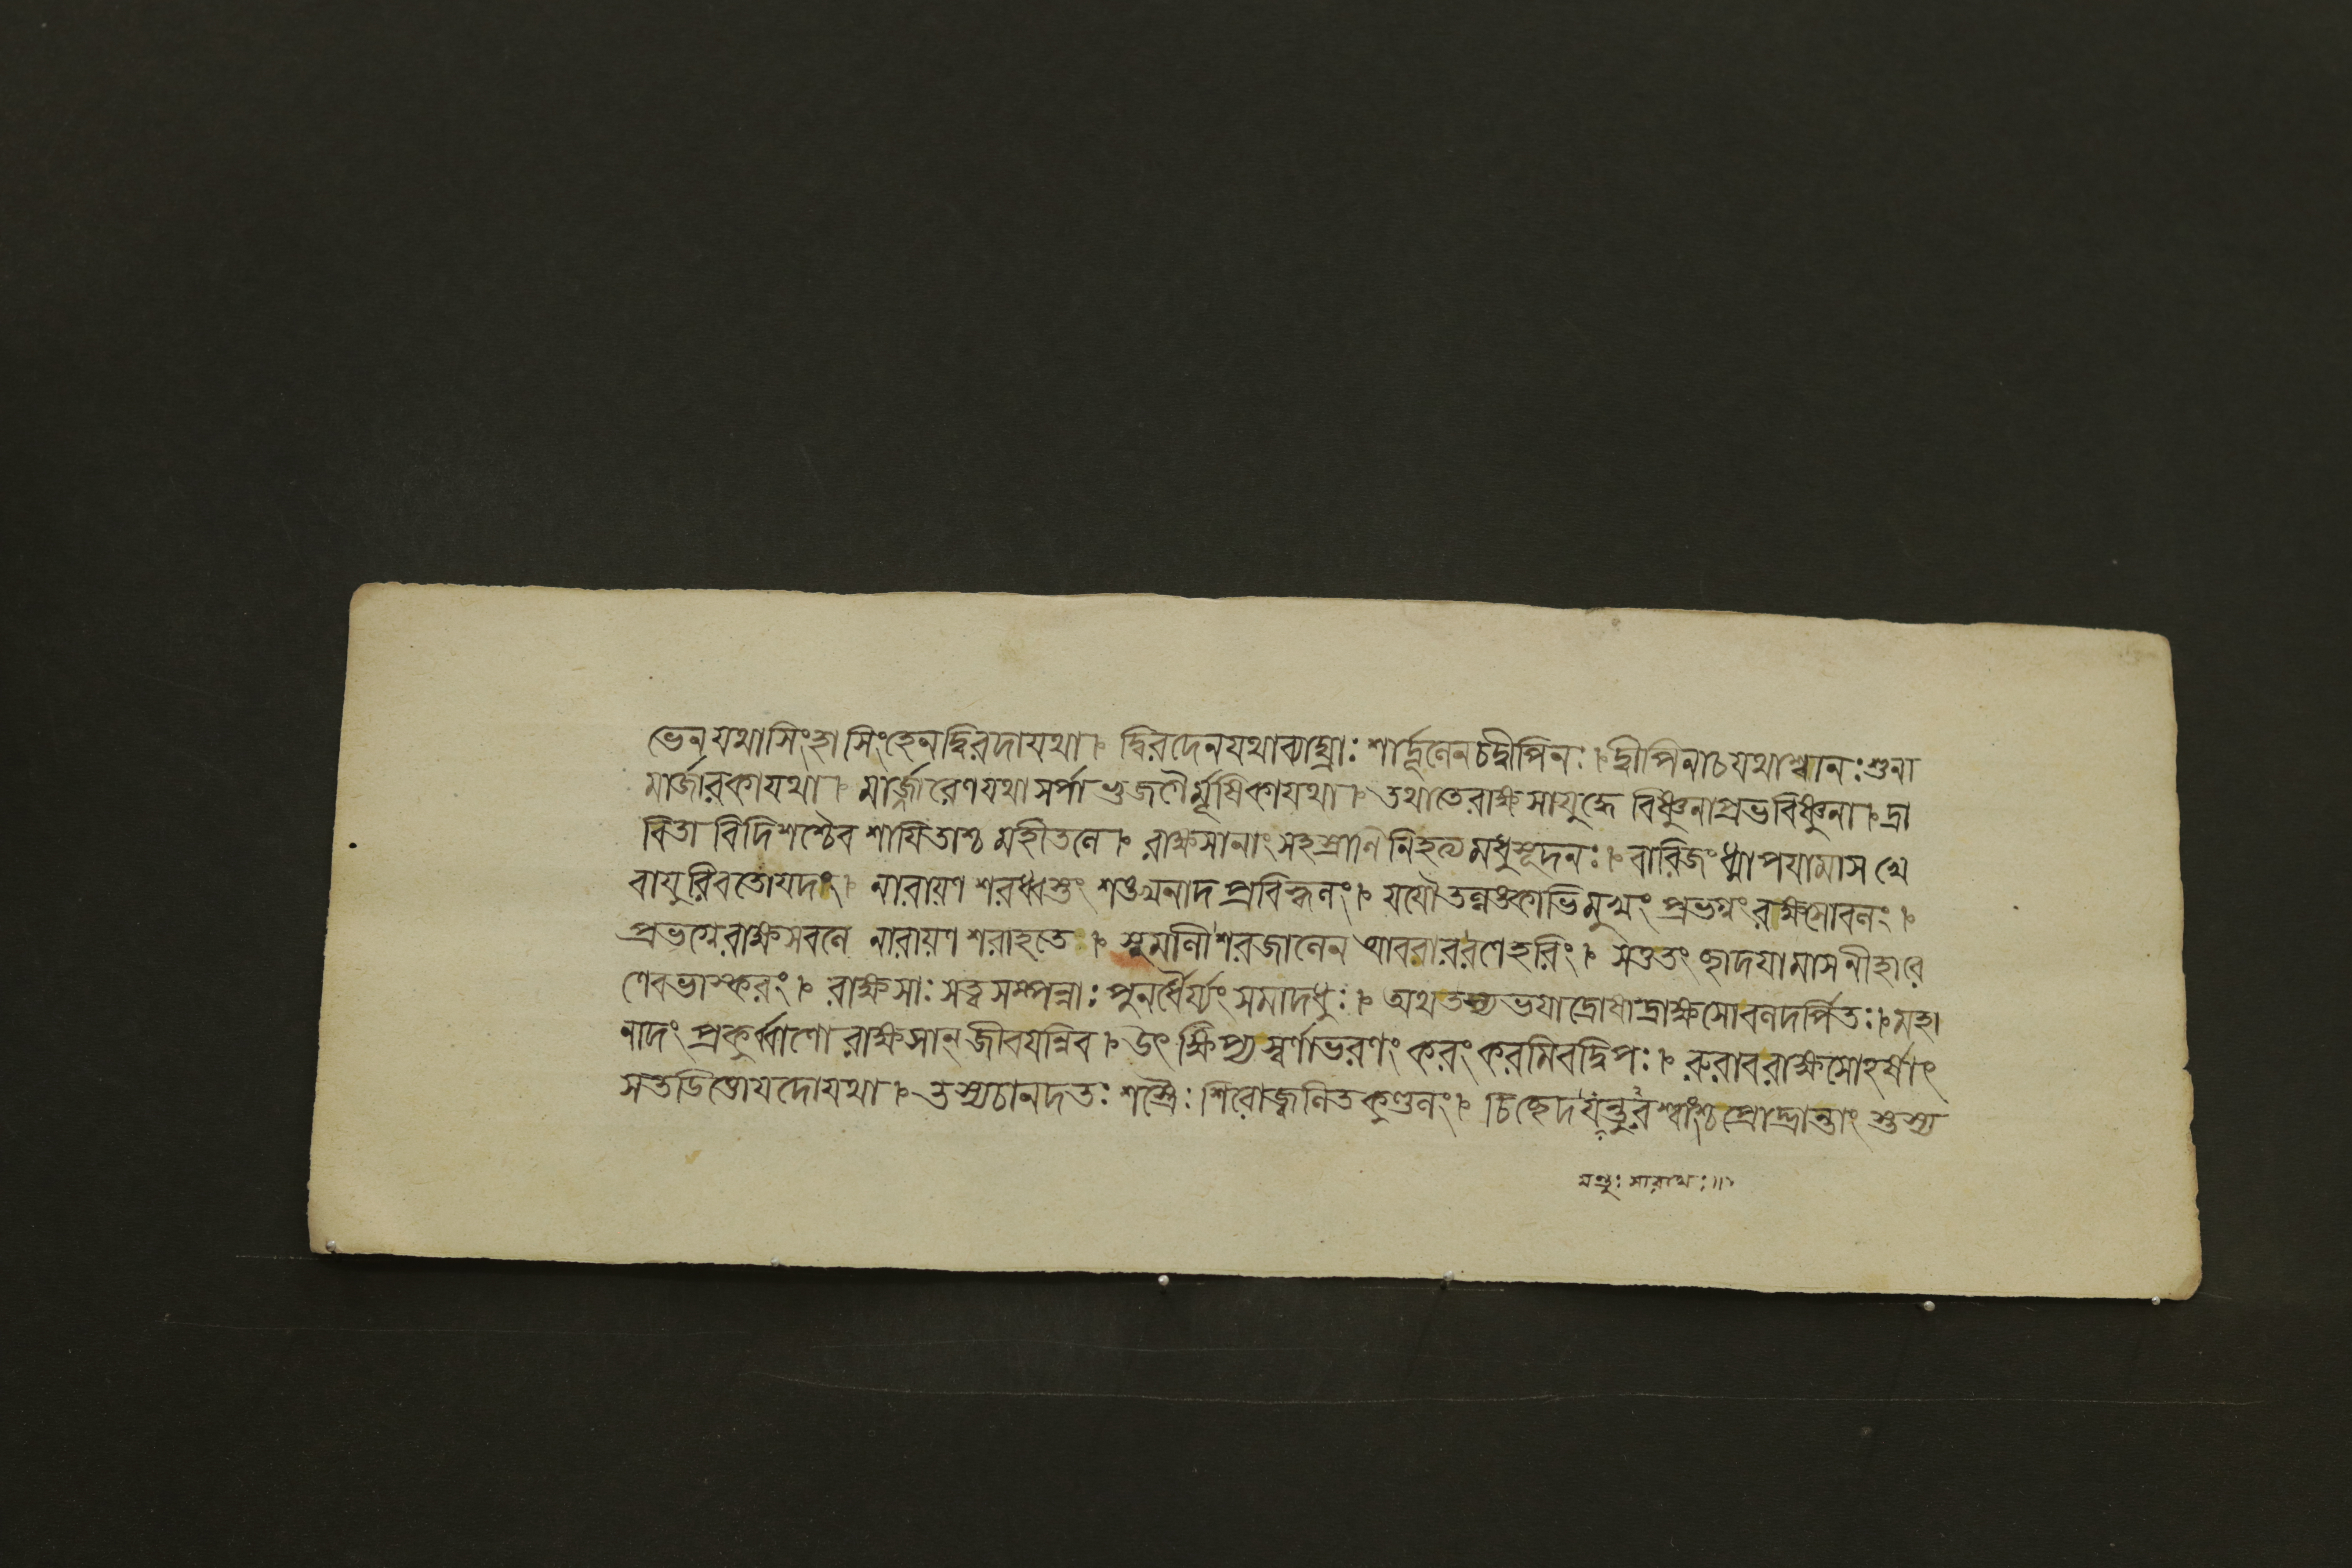 ভেন যথাসিংহাসিংহেনদ্বিরদাযথা। দ্বিরদেনযথাব্যাঘ্রাঃ শার্দ্দূলেনচদ্বীপিনঃ। দ্বীপিনাচযথাশ্বানঃ শুনা
মার্জারকাযথা। মার্জ্জারেণযথাসর্পা ভুজগৈর্মূষিকাযথা। তথাতেরাক্ষসাযুদ্ধে বিষ্ণুনাপ্রভবিষ্ণুনা। দ্রা
বিতা বিদিশশ্চৈব শাযিতাশ্চ মহীতলে। রাক্ষসানাং সহস্রাণি নিহত্য মধুসূদনঃ। বারিজং ধ্মাপযামাস খে
বাযুরিবতোযদং। নারায়ণ শরধ্বস্তং শঙ্খনাদ প্রবিহ্বলং। যযৌ তল্লঙ্কাভিমুখং প্রভগ্নং রাক্ষসোবলং।
প্রভগ্নেরাক্ষসবলে নারায়ণ শরাহতে। সুমালী শরজালেন আববাররণেহরিং। সতুতং ছাদযামাসনীহারে
ণেবভাস্করং। রাক্ষসাঃ সত্ত্বসম্পন্নাঃ পুনর্ধৈর্য্যং সমাদধুঃ। অথতস্যভযাদ্রোষাদ্রাক্ষসোবলদর্পিতঃ। মহা
নাদং প্রকুর্ব্বাণো রাক্ষসান্ জীবযন্নিব। উৎক্ষিপ্য স্বর্ণাভরণং করং করমিবদ্বিপঃ। রুরাবরাক্ষসোহর্ষাৎ
সতডিত্তোযদোযথা। তস্যচানদতঃ শস্ত্রৈঃ শিরোজ্বলিতকুণ্ডলং। চিচ্ছেদ যন্তুরশ্বাংশ্চ